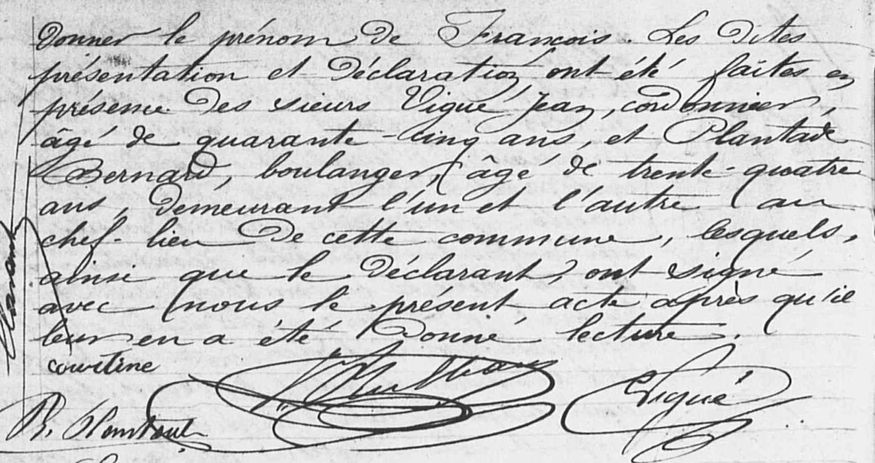 donner le prénom de François. Les dites
présentation et déclaration ont été faites en
présence des sieurs Vigué Jean, cordonnier,
âgé de quarante-cinq ans, et Plantade
Bernard, boulanger, âgé de trente-quatre
ans, demeurant l'un et l'autre au
chef-lieu de cette commune, lesquels,
ainsi que le déclarant, ont signé
avec nous le présent acte après qu'il
leur en a été donné lecture.
courtine
Vigué
B. Plantade